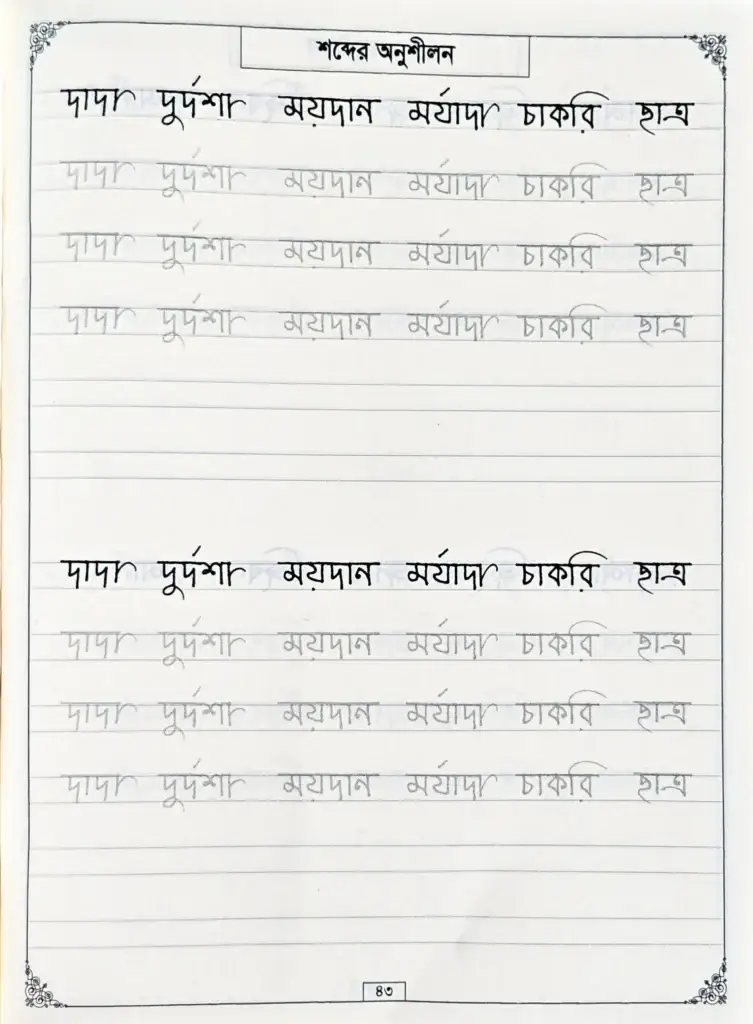 শব্দের অনুশীলন
দাদা দুর্দশা ময়দান মর্যাদা চাকরি ছাত্র
দাদা দুর্দশা ময়দান মর্যাদা চাকরি ছাত্র
দাদা দুর্দশা ময়দান মর্যাদা চাকরি ছাত্র
দাদা দুর্দশা ময়দান মর্যাদা চাকরি ছাত্র
দাদা দুর্দশা ময়দান মর্যাদা চাকরি ছাত্র
দাদা দুর্দশা ময়দান মর্যাদা চাকরি ছাত্র
দাদা দুর্দশা ময়দান মর্যাদা চাকরি ছাত্র
দাদা দুর্দশা ময়দান মর্যাদা চাকরি ছাত্র
৪৩